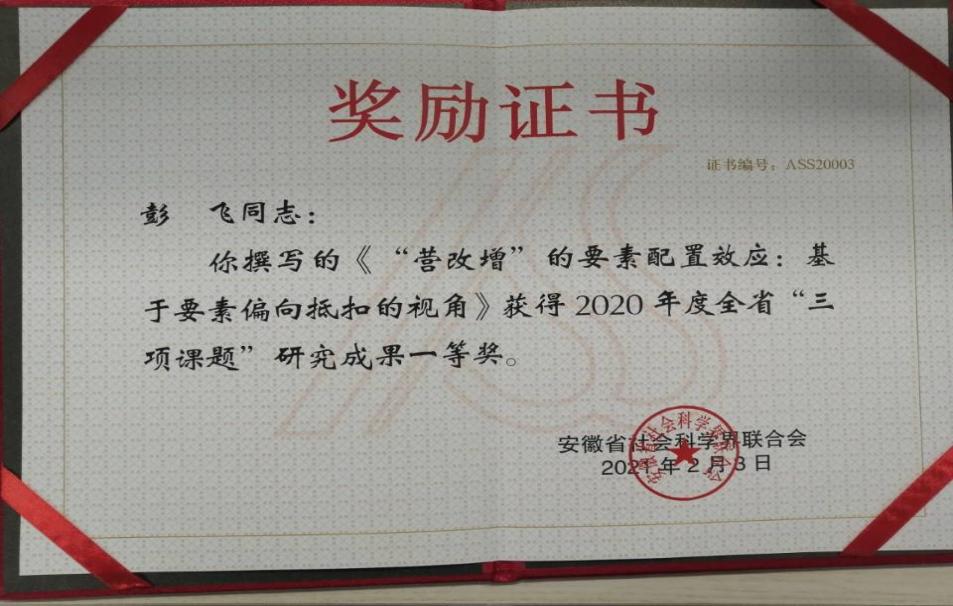 奖励证书
证书编号：ASS20003
彭　飞同志：
你撰写的《“营改增”的要素配置效应：基
于要素偏向抵扣的视角》获得2020年度全省“三
项课题”研究成果一等奖。
安徽省社会科学界联合会
2021年2月3日
安徽省社会科学界联合会